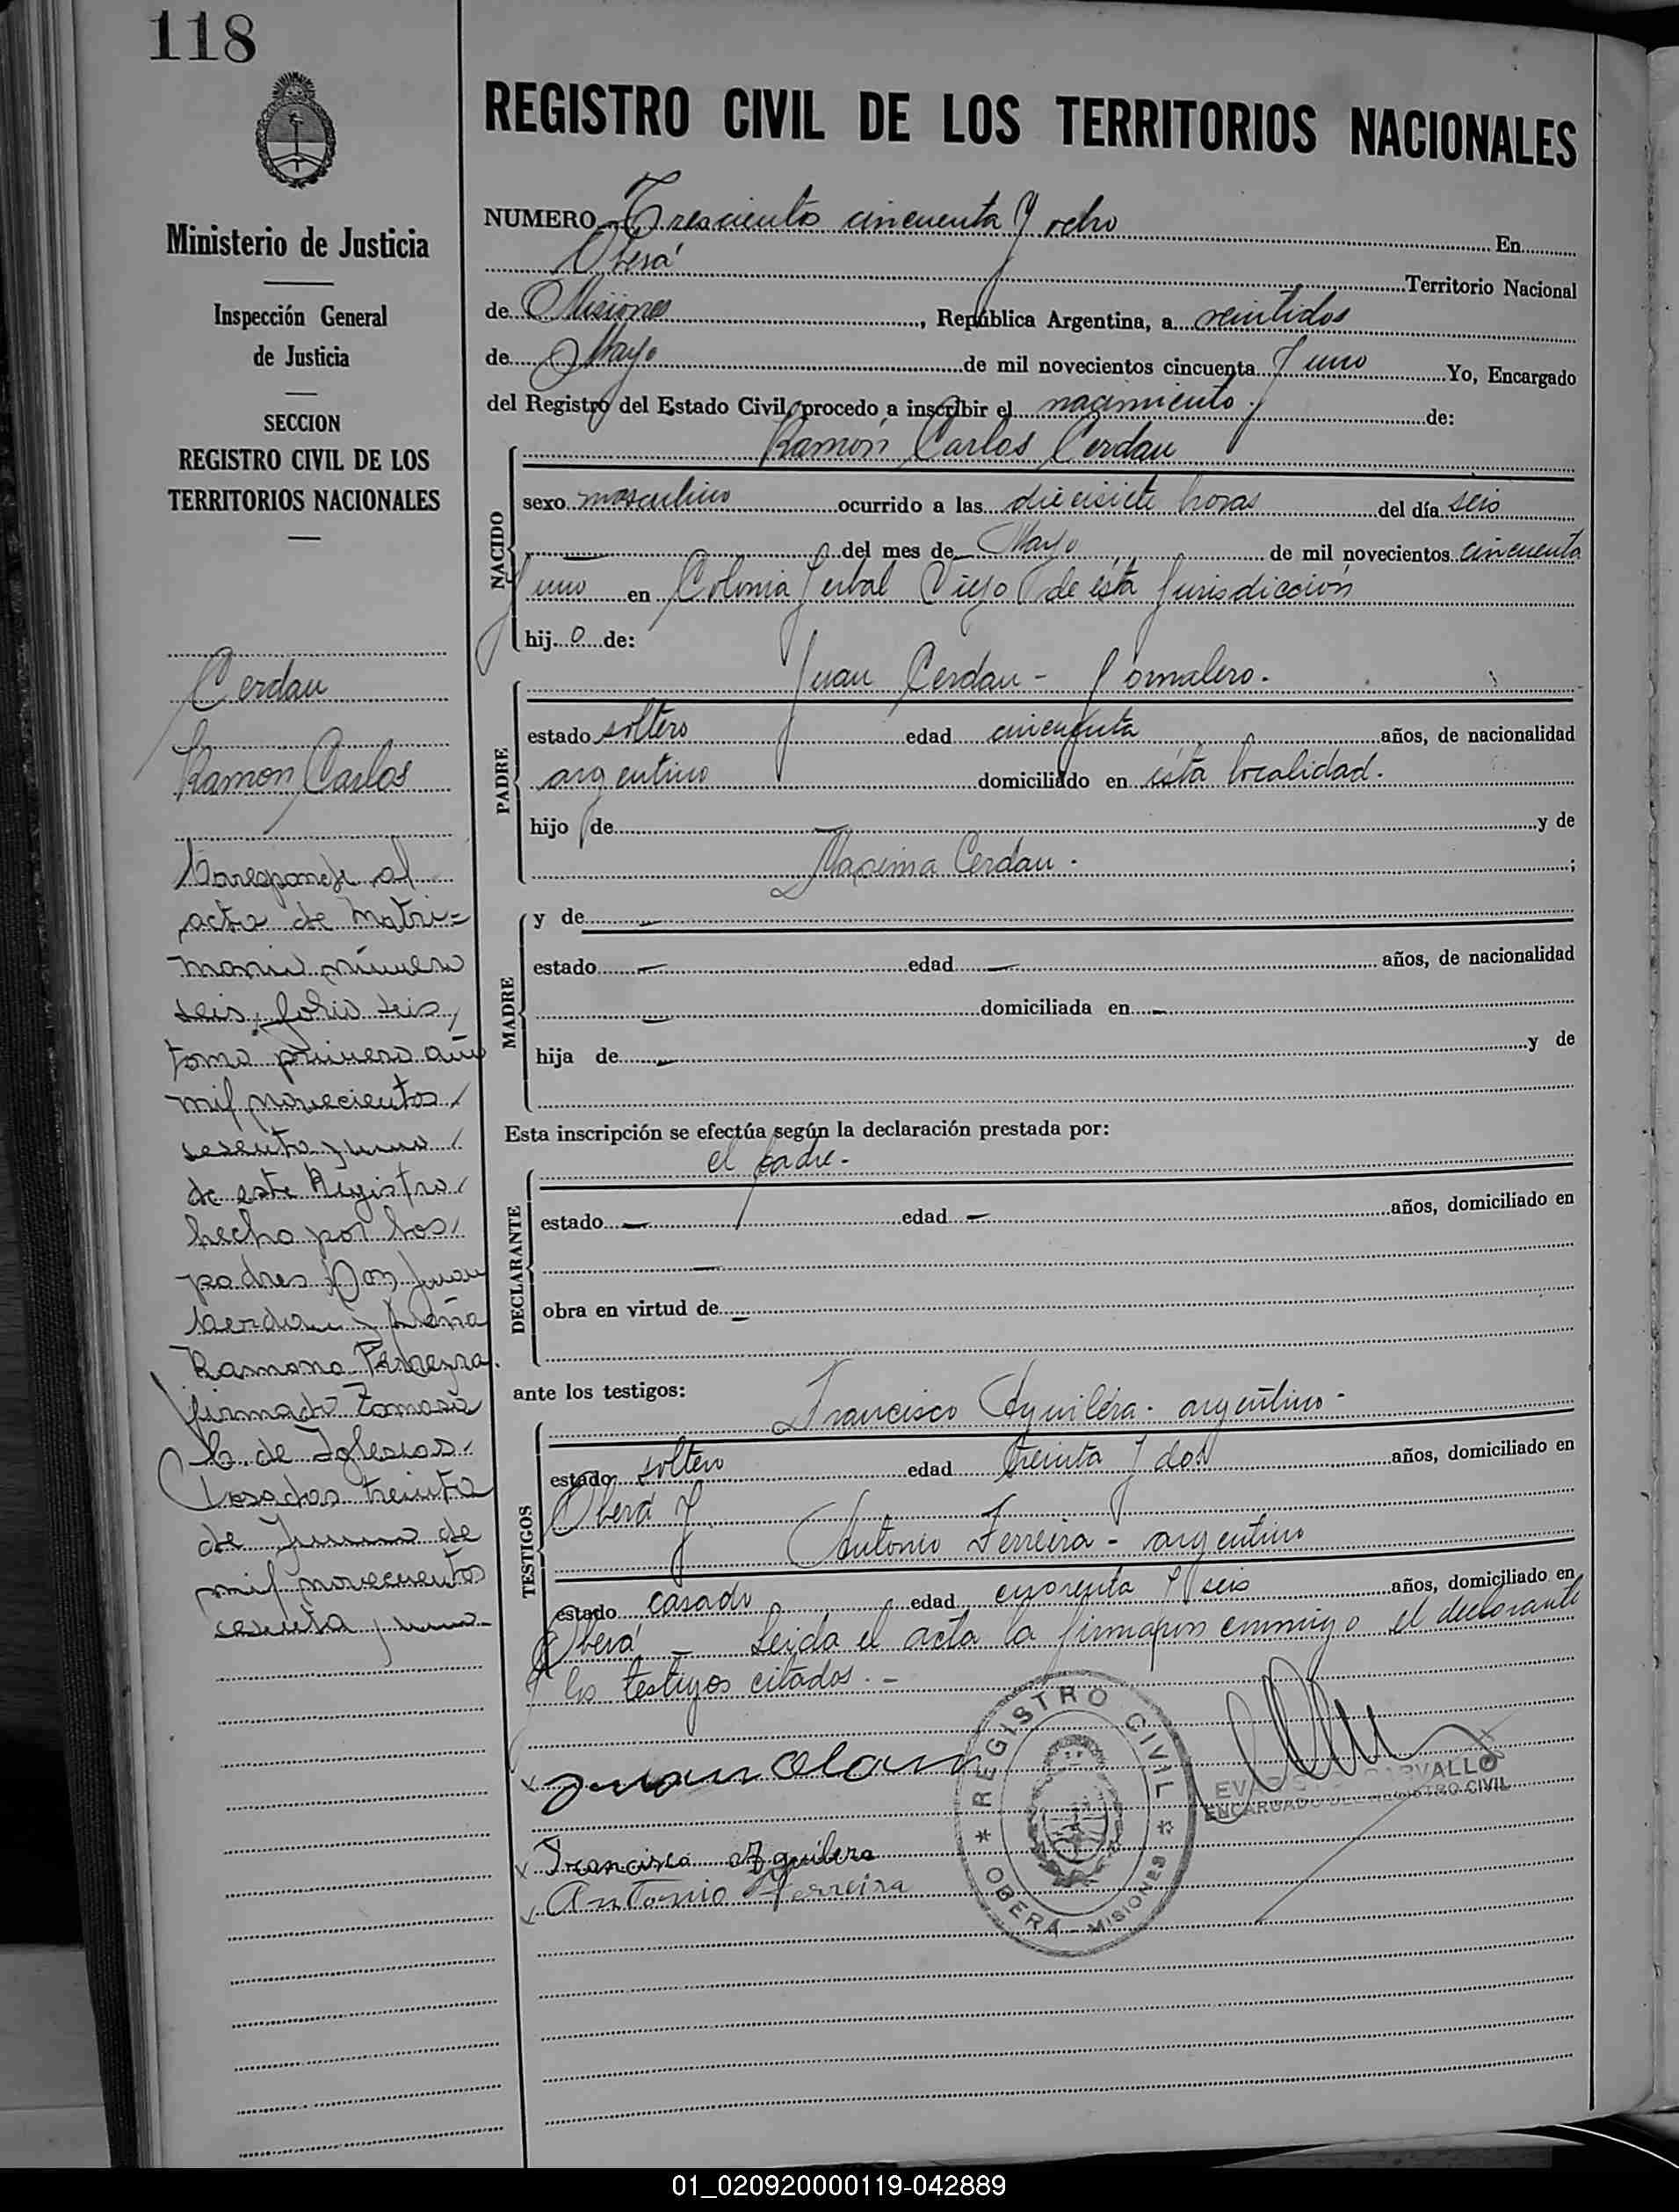 118
REGISTRO CIVIL DE LOS TERRITORIOS NACIONALES
Ministerio de Justicia
Inspección General
de Justicia
SECCION
REGISTRO CIVIL DE LOS
TERRITORIOS NACIONALES
NUMERO Trescientos cincuenta y ocho En
Oberá Territorio Nacional
de Misiones, República Argentina, a veintidos
de Mayo de mil novecientos cincuenta y uno Yo, Encargado
del Registro del Estado Civil, procedo a inscribir el nacimiento. de:
Ramón Carlos Cerdau
NACIDO
sexo masculino ocurrido a las diecisiete horas del día seis
del mes de Mayo de mil novecientos cincuenta
y uno en Colonia Yerbal Viejo de ésta Jurisdicción
hijo de:
PADRE
Juan Cerdau - Jornalero.
estado soltero edad cincuenta años, de nacionalidad
argentino domiciliado en ésta localidad.
hijo de y de
Maxima Cerdau.;
MADRE
y de
estado edad años, de nacionalidad
domiciliada en
hija de y de
Esta inscripción se efectúa según la declaración prestada por:
DECLARANTE
el padre.-
estado edad años, domiciliado en
obra en virtud de
ante los testigos:
TESTIGOS
Francisco Aguilera. argentino-
estado soltero edad treinta y dos años, domiciliado en
Oberá y
Antonio Ferreira - argentino
estado casado edad cuarenta y seis años, domiciliado en
Oberá - Leida el acta la firmaron conmigo el declarante
y los testigos citados.-
Juan
Francisco Aguilera
Antonio Ferreira
REGISTRO CIVIL
OBERÁ - MISIONES
CARVALLO
ENCARGADO DEL REGISTRO CIVIL
Cerdau
Ramon Carlos
Corresponde al
acta de matri=
monio número
seis, folio seis,
tomo primero año
mil novecientos
sesenta y uno
de este Registro
hecho por los
padres Don Juan
Cerdau y Doña
Ramona Perreyra.
firmado Tomasa
C. de Iglesias.
Posadas treinta
de Junio de
mil novecientos
sesenta y uno-
01_020920000119-042889